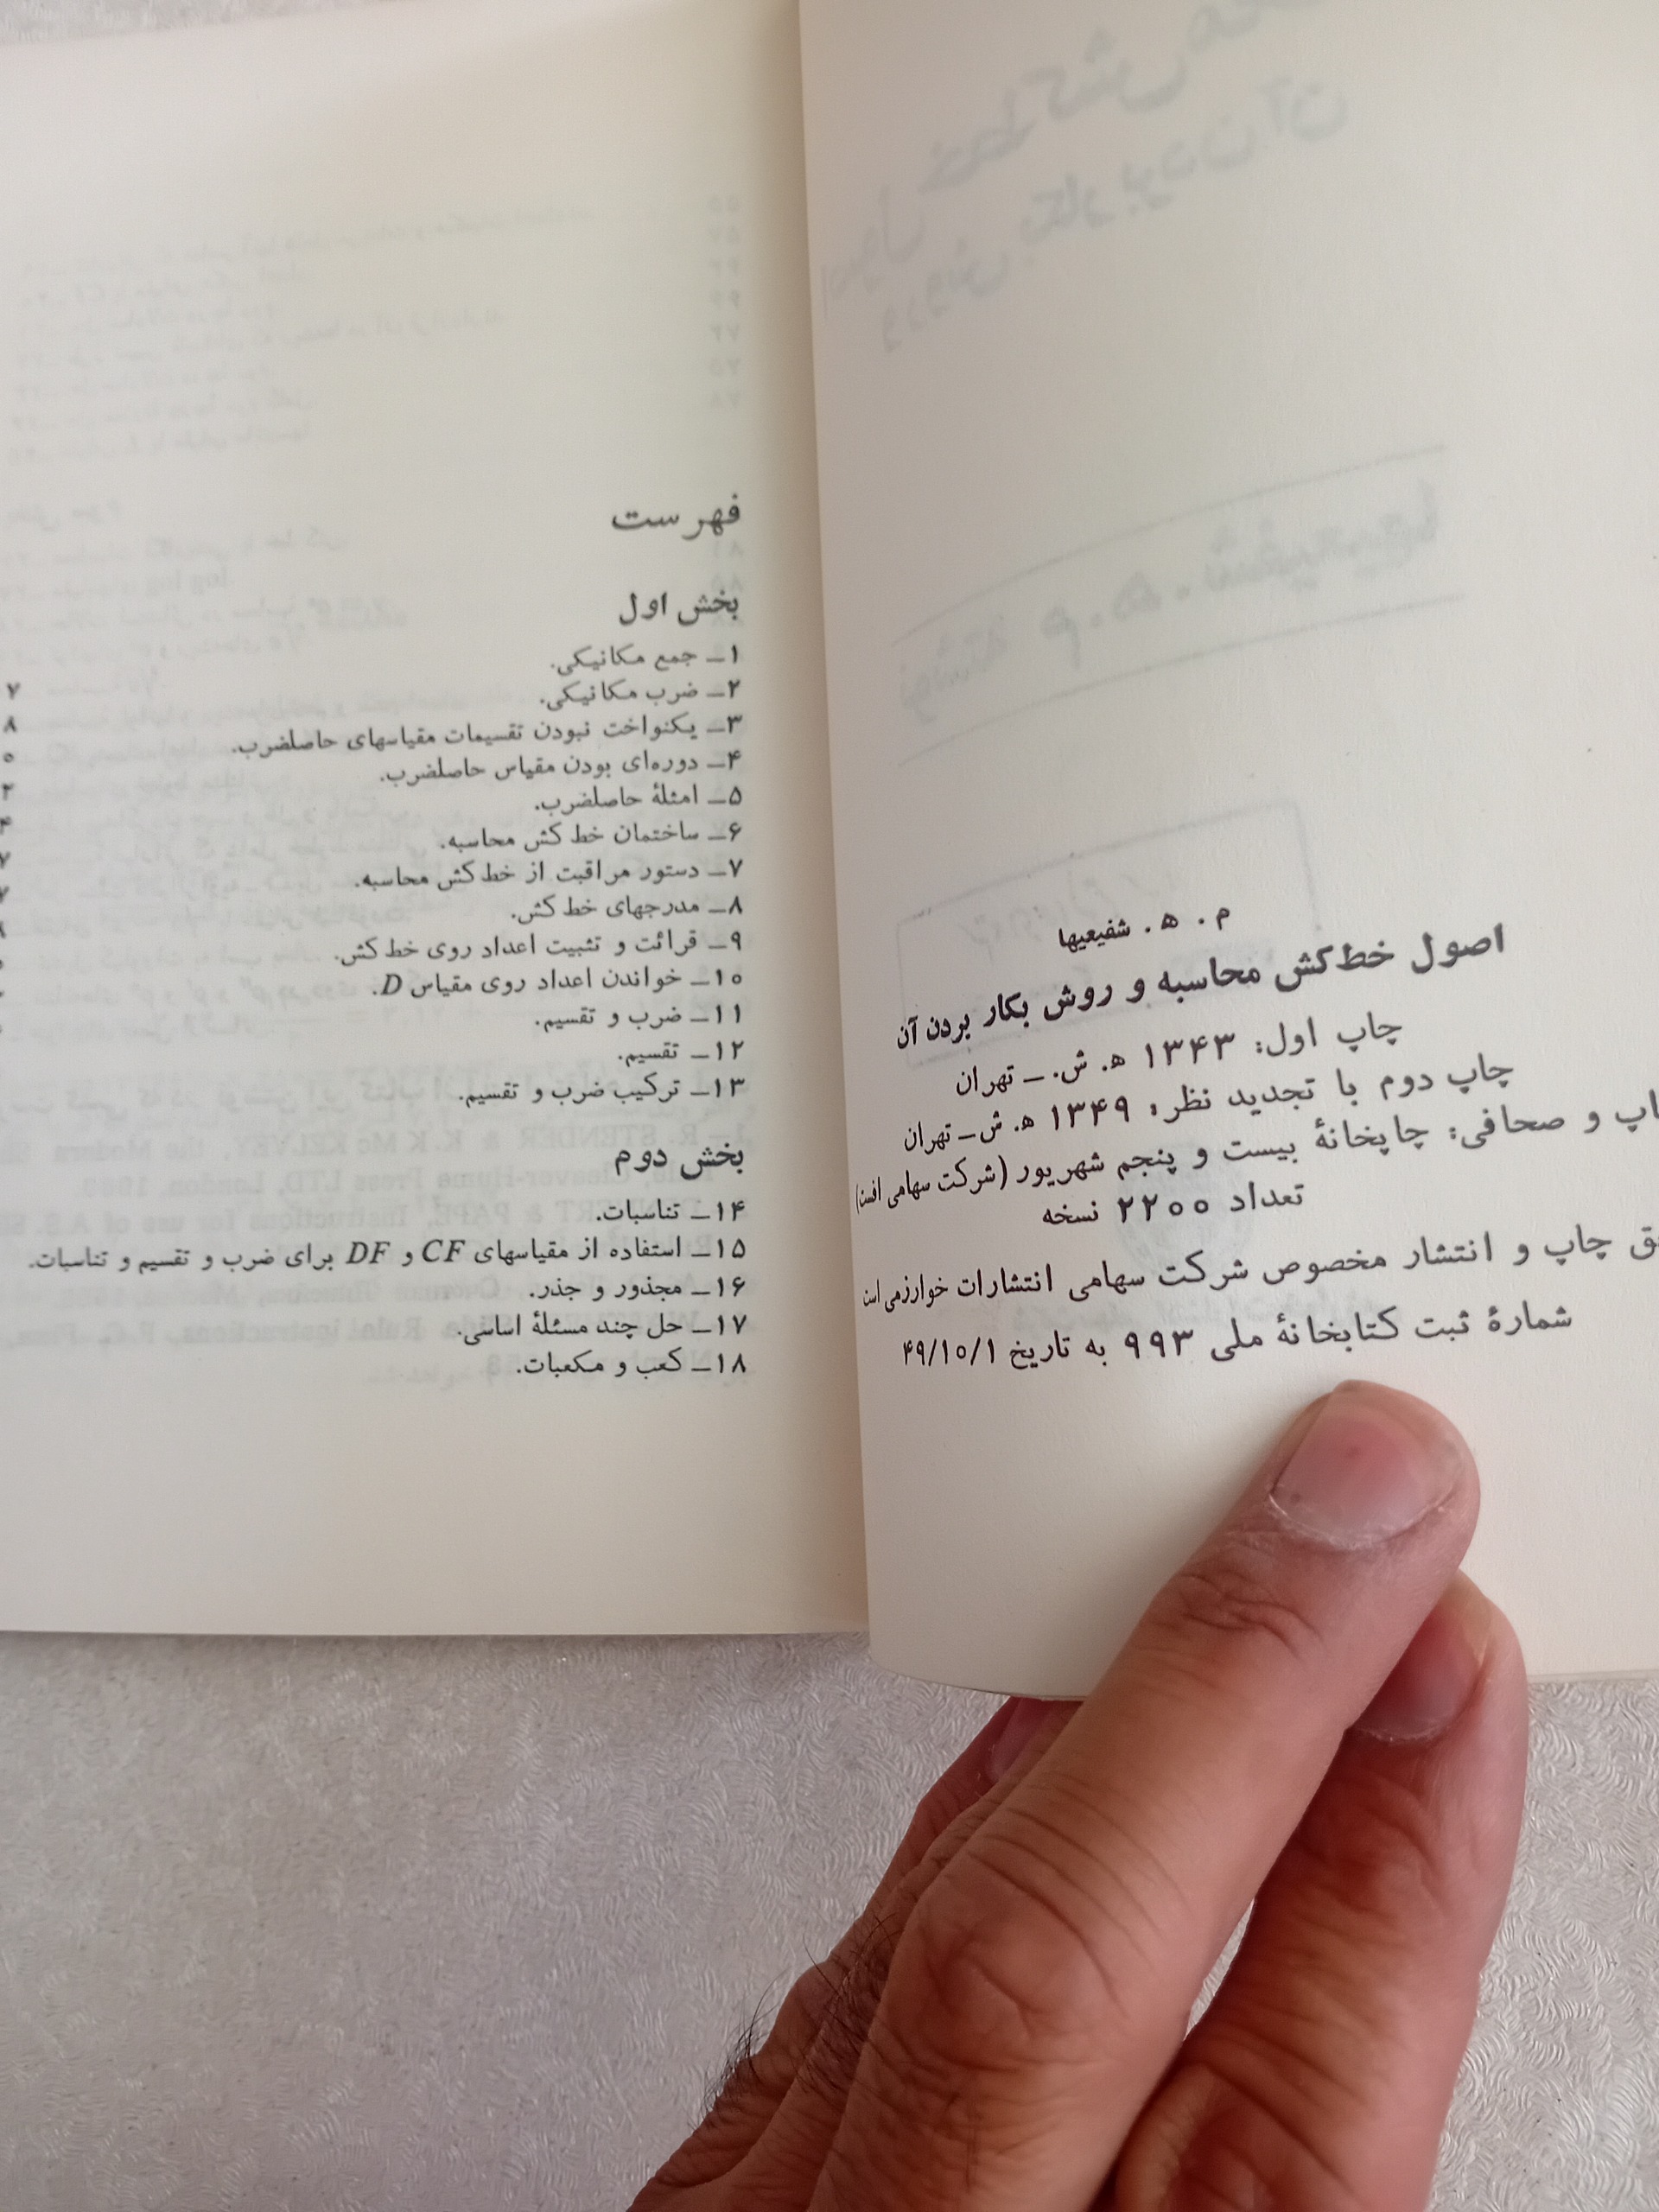 م. ه. شفیعیها
اصول خط‌کش محاسبه و روش بکار بردن آن
چاپ اول: ۱۳۴۳ ه. ش. ــ تهران
چاپ دوم با تجدید نظر: ۱۳۴۹ ه. ش ــ تهران
و صحافی: چاپخانهٔ بیست و پنجم شهریور (شرکت سهامی افست)
تعداد ۲۲۰۰ نسخه
چاپ و انتشار مخصوص شرکت سهامی انتشارات خوارزمی است
شمارهٔ ثبت کتابخانهٔ ملی ۹۹۳ به تاریخ ۴۹/۱۰/۱
فهرست
بخش اول
۱ــ جمع مکانیکی.
۲ــ ضرب مکانیکی. ۷
۳ــ یکنواخت نبودن تقسیمات مقیاسهای حاصلضرب. ۸
۴ــ دوره‌ای بودن مقیاس حاصلضرب.
۵ــ امثلهٔ حاصلضرب.
۶ــ ساختمان خط کش محاسبه.
۷ــ دستور مراقبت از خط‌کش محاسبه.
۸ــ مدرجهای خط کش.
۹ــ قرائت و تثبیت اعداد روی خط‌کش.
۱۰ــ خواندن اعداد روی مقیاس D.
۱۱ــ ضرب و تقسیم.
۱۲ــ تقسیم.
۱۳ــ ترکیب ضرب و تقسیم.
بخش دوم
۱۴ــ تناسبات.
۱۵ــ استفاده از مقیاسهای CF و DF برای ضرب و تقسیم و تناسبات.
۱۶ــ مجذور و جذر.
۱۷ــ حل چند مسئلهٔ اساسی.
۱۸ــ کعب و مکعبات.